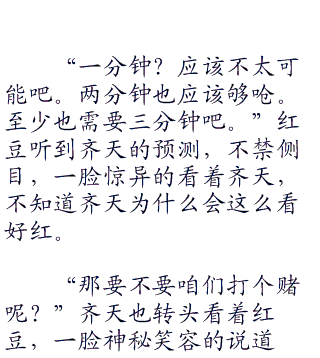 “一分钟？应该不太可
能吧。两分钟也应该够呛。
至少也需要三分钟吧。”红
豆听到齐天的预测，不禁侧
目，一脸惊异的看着齐天，
不知道齐天为什么会这么看
好红。
“那要不要咱们打个赌
呢？”齐天也转头看着红
豆，一脸神秘笑容的说道